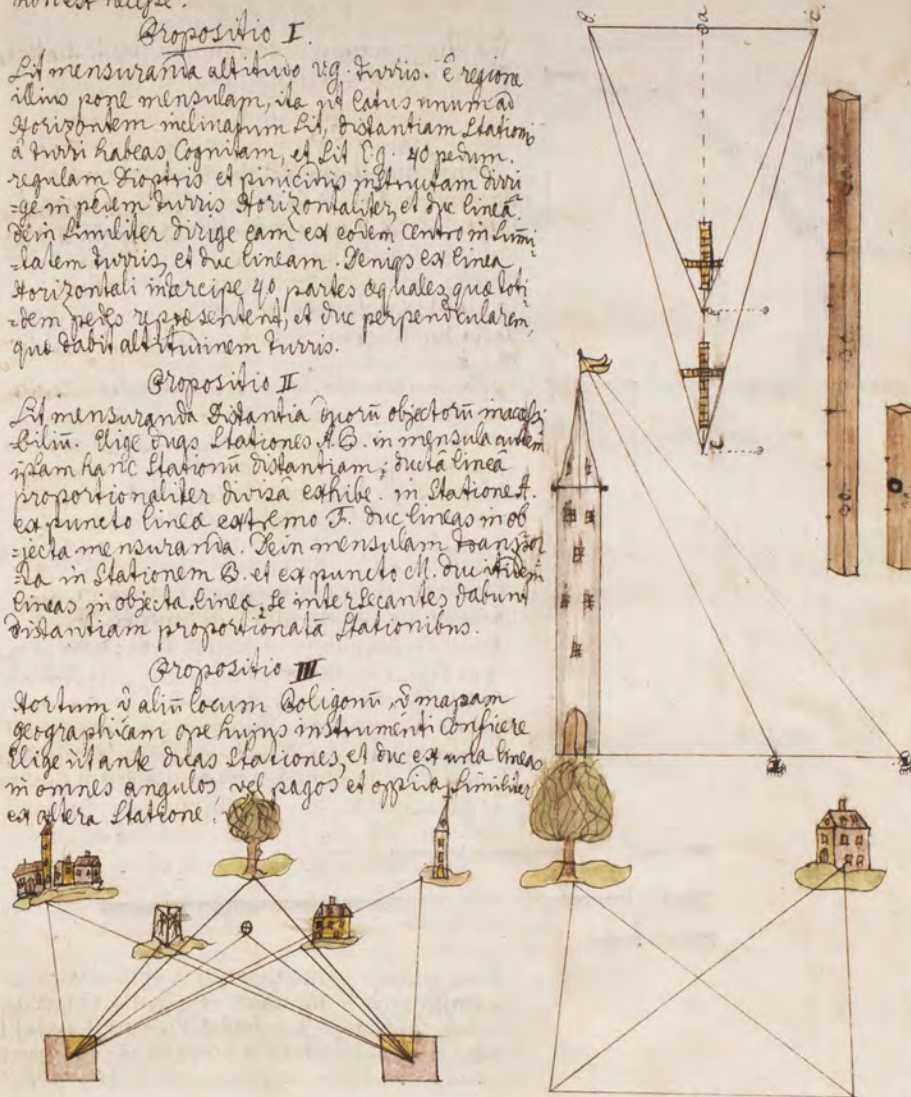 non est necesse.
Propositio I.
Sit mensuranda altitudo v.g. turris. è regione
illius pone mensulam, ita ut latus unum ad
Horizontem inclinatum sit, distantiam Stationis
à turri habeas Cognitam, et sit v.g. 40 pedum.
regulam Dioptris et pinicidiis instructam dirri
=ge in pedem turris Horizontaliter, et duc lineā.
Dein Similiter dirige eam ex eodem Centro in Sum̄i
=tatem turris, et duc lineam. Deniqȝ ex linea
Horizontali intercipe 40 partes aequales, quae toti
=dem pedes repraesentent, et duc perpendicularem,
quae dabit altitudinem turris.
Propositio II
Sit mensuranda Distantia duorū objectorū inaccessi
=biliū. Elige duas Stationes A. B. in mensula autem
ipsam hanc Stationū distantiam, ductâ lineâ
proportionaliter divisâ exhibe. in Statione A.
ex puncto lineae extremo F. duc lineas in ob
=jecta mensuranda. Dein mensulam transfer
=ta in Stationem B. et ex puncto M. duc itidem
lineas in objecta. lineae Se intersecantes dabunt
distantiam proportionatā Stationibus.
Propositio III
Hortum v̄ aliū locum Poligonū, v̄ mapam
geographicam ope hujus instrumenti Conficere
Elige ut ante duas Stationes, et duc ex una lineas
in omnes angulos, vel pagos et oppida, Similiter
ex altera Statione.
b. a c.